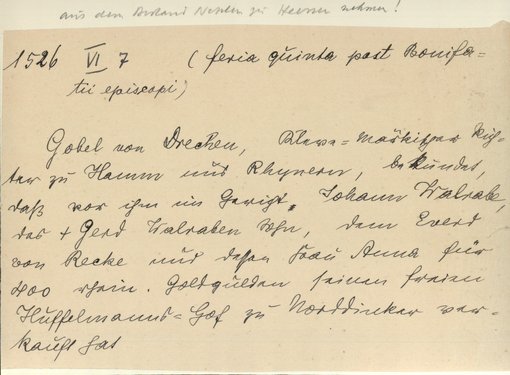 aus dem Bestand Nehlen zu Heessen nehmen!
1526 VI 7 (feria quinta post Bonifa-
tii episcopi)
Gobel von Drechen, Kleve-märkischer Rich-
ter zu Hamm und Rhynern, bekundet,
daß vor ihm im Gericht Johann Walrabe,
des + Gerd Walraben Sohn, dem Everd
von Recke und dessen Frau Anna für
400 rhein. Goldgulden seinen freien
Huffelmanns-Hof zu Norddinker ver-
kauft hat